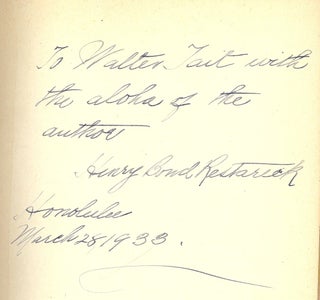 To Walter Tait with
the aloha of the
author
Henry Bond Restarick
Honolulu
March 28 1933.